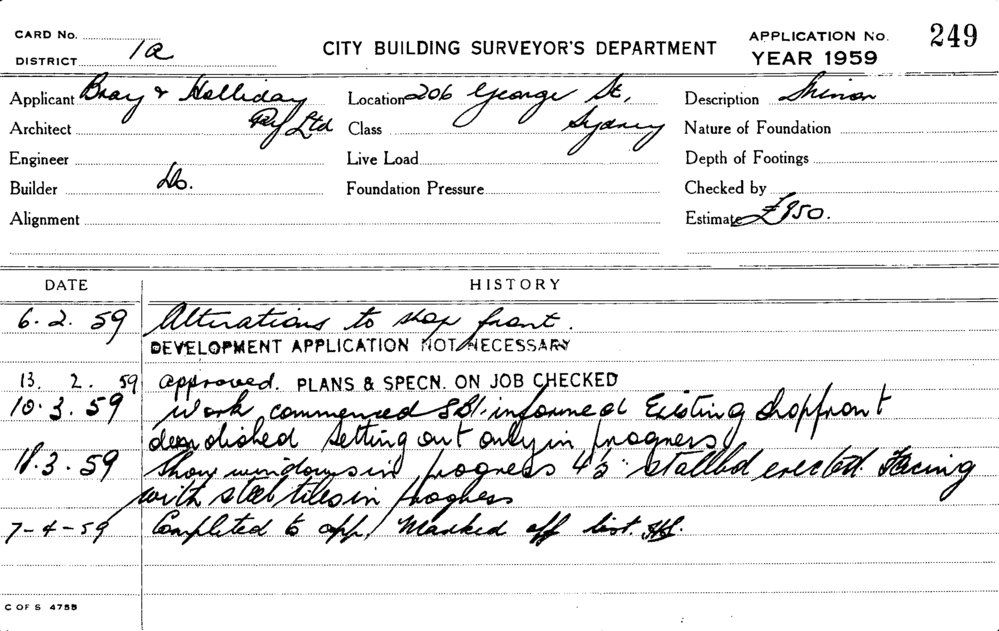 CARD No.
DISTRICT 1a
CITY BUILDING SURVEYOR'S DEPARTMENT
APPLICATION No. 249
YEAR 1959
Applicant Bray & Halliday Pty Ltd
Location 206 George St, Sydney
Description Minor
Architect
Class
Nature of Foundation
Engineer
Live Load
Depth of Footings
Builder Do.
Foundation Pressure
Checked by
Alignment
Estimate £950.
DATE HISTORY
6.2.59 Alterations to shop front.
DEVELOPMENT APPLICATION NOT NECESSARY
13.2.59 approved. PLANS & SPECN. ON JOB CHECKED
10.3.59 Work commenced informed Existing shopfront
demolished setting out only in progress
18.3.59 Show windows in progress erected. Facing
with tiles in progress
7-4-59 Completed to app. Marked off list.
C OF S 475B